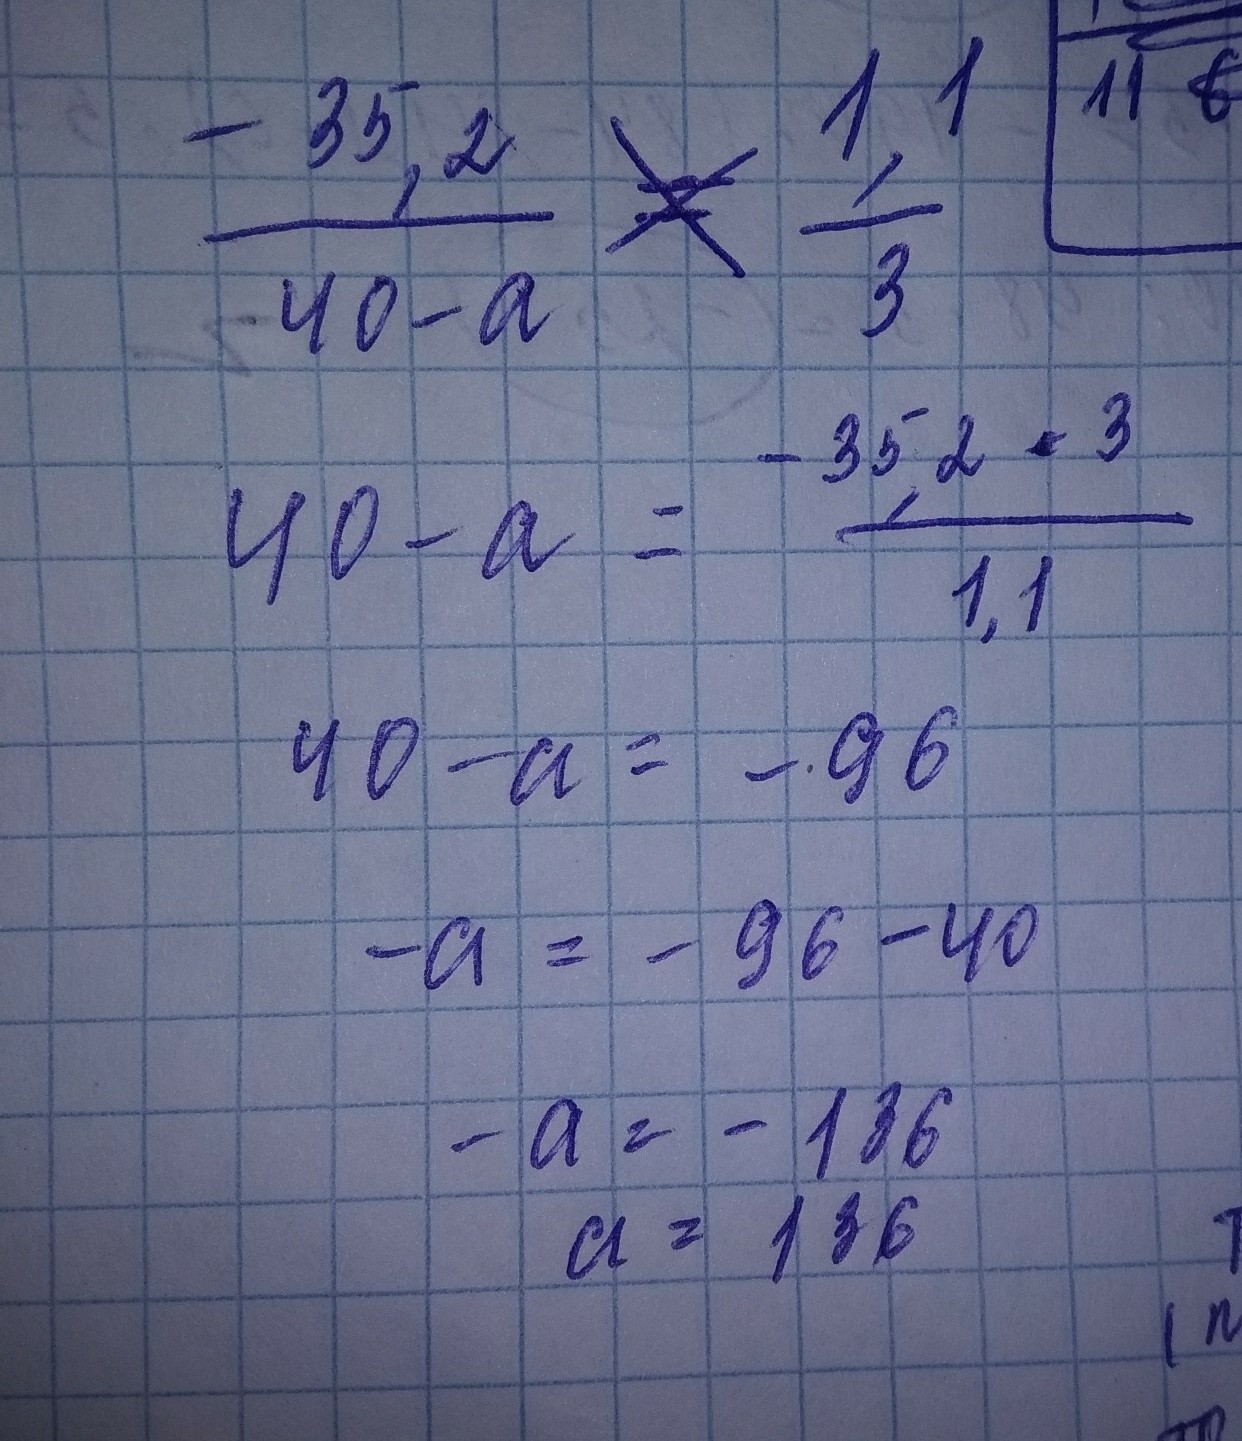 - 35,2 / 40 - a = 1,1 / 3
40 - a = - 35,2 · 3 / 1,1
40 - a = - 96
- a = - 96 - 40
- a = - 136
a = 136
11